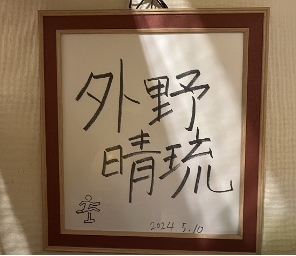 外野
晴琉
2024 5.10